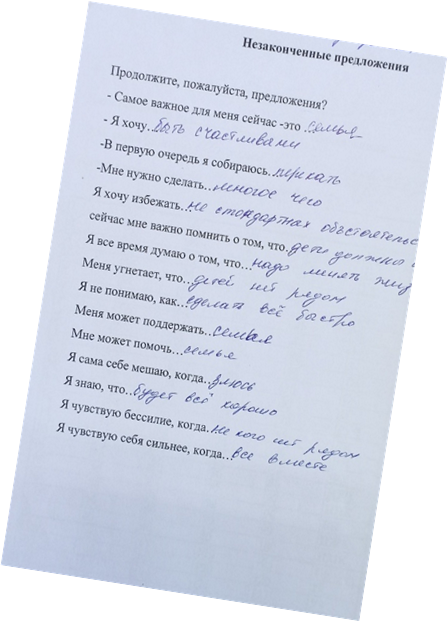 Незаконченные предложения
Продолжите, пожалуйста, предложения?
- Самое важное для меня сейчас -это ..семья
- Я хочу...быть счастливами
-В первую очередь я собираюсь...
-Мне нужно сделать...многое чего
Я хочу избежать...не стандартных обстоятельс
сейчас мне важно помнить о том, что..дети должно
Я все время думаю о том, что...надо минять жиз
Меня угнетает, что...детей нит рядом
Я не понимаю, как...сделать всё быстро
Меня может поддержать...семья
Мне может помочь...семья
Я сама себе мешаю, когда..злюсь
Я знаю, что...будет всё хорошо
Я чувствую бессилие, когда..не кого нит рядом
Я чувствую себя сильнее, когда...все вместе